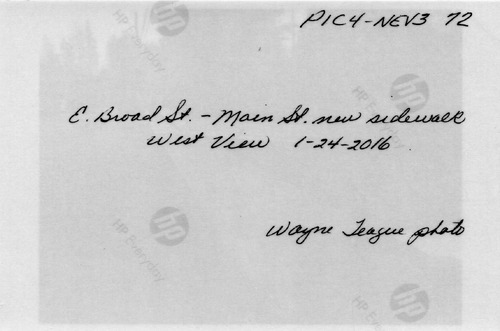 PIC4-NEV3 72
hp
HP Everyday
E. Broad St. - Main St. new sidewalk
hp
West View 1-24-2016
hp
HP Everyday
Wayne Teague photo
hp
HP Everyday